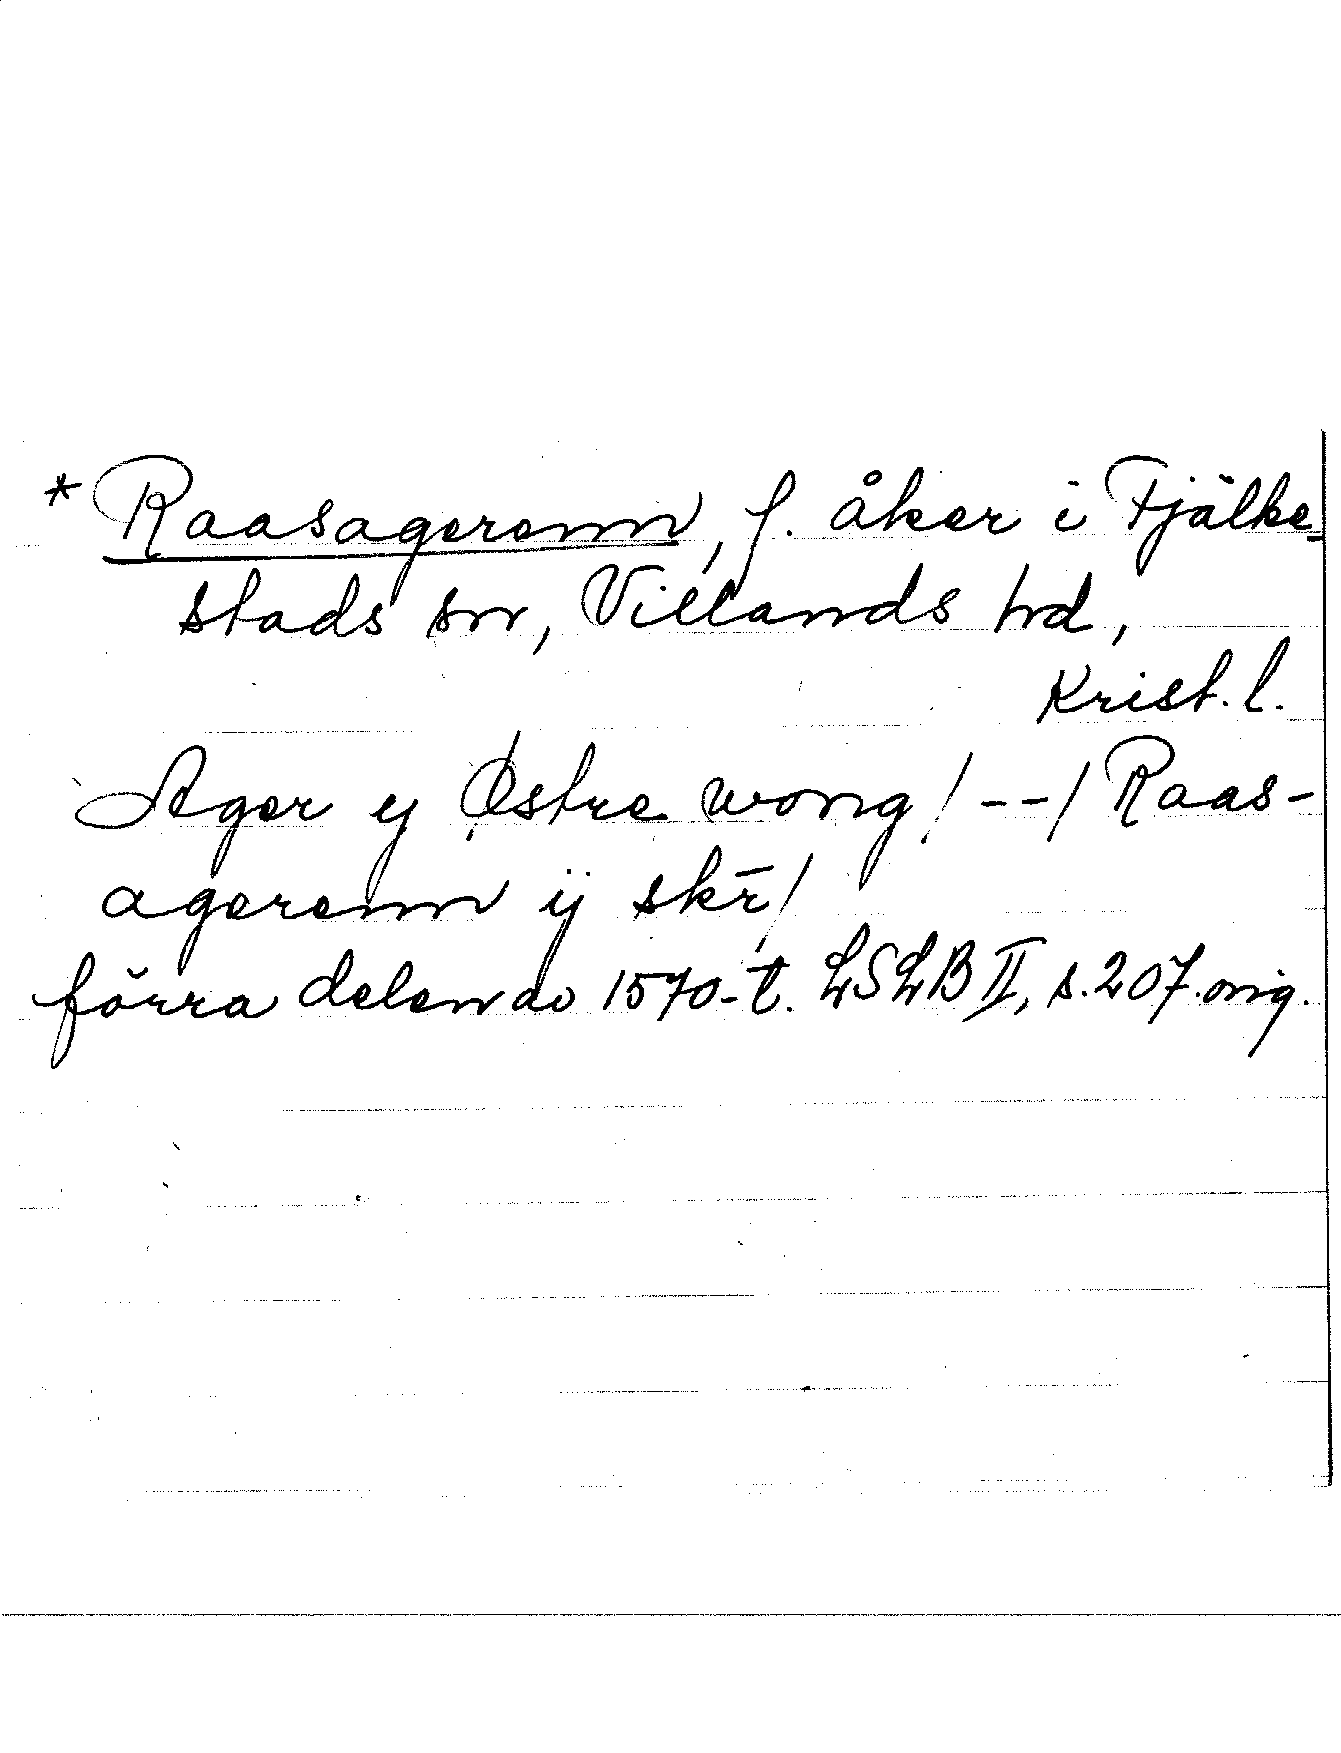 * Raasagerenn, f. åker i Fjälke-
stads sn, Villands hd,
Krist. l.
Ager y Østre wong / -- / Raas-
agerenn ÿ skr̄ /
förra delen av 1570-t. LSLB II, s. 207. orig.